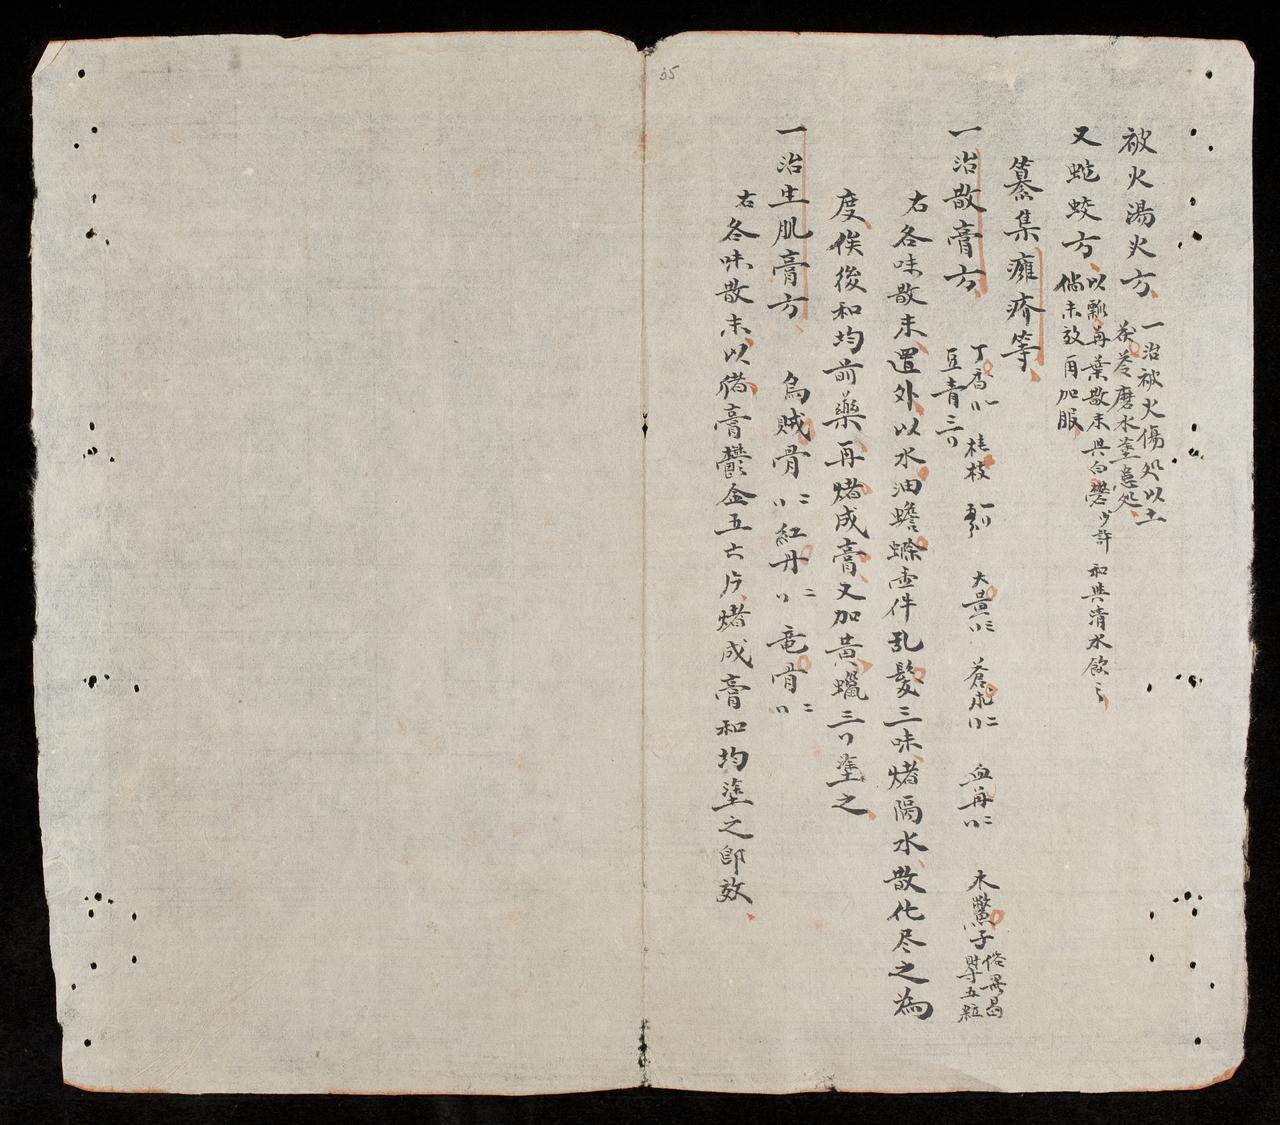 35
被火湯火方 一治被火傷処以土
茯苓磨水塗患処
又虵蛟方 以瓢再葉散末共白礬少許和共清水飲之
倘未效再加服
纂集癰疥等
一治散膏方 丁香 桂枝 大黄 蒼朮 血再 木鱉子 俗号
豆青三 五粒
右各味散末置外以水油蟾蜍壹件乱髪三味烤隔水散化尽之為
度俟後和均前藥再烤成膏又加黄蠟三塗之
一治生肌膏方 烏賊骨二 紅丹二 竜骨二
右各味散末以猪膏鬱金五六片烤成膏和均塗之即效